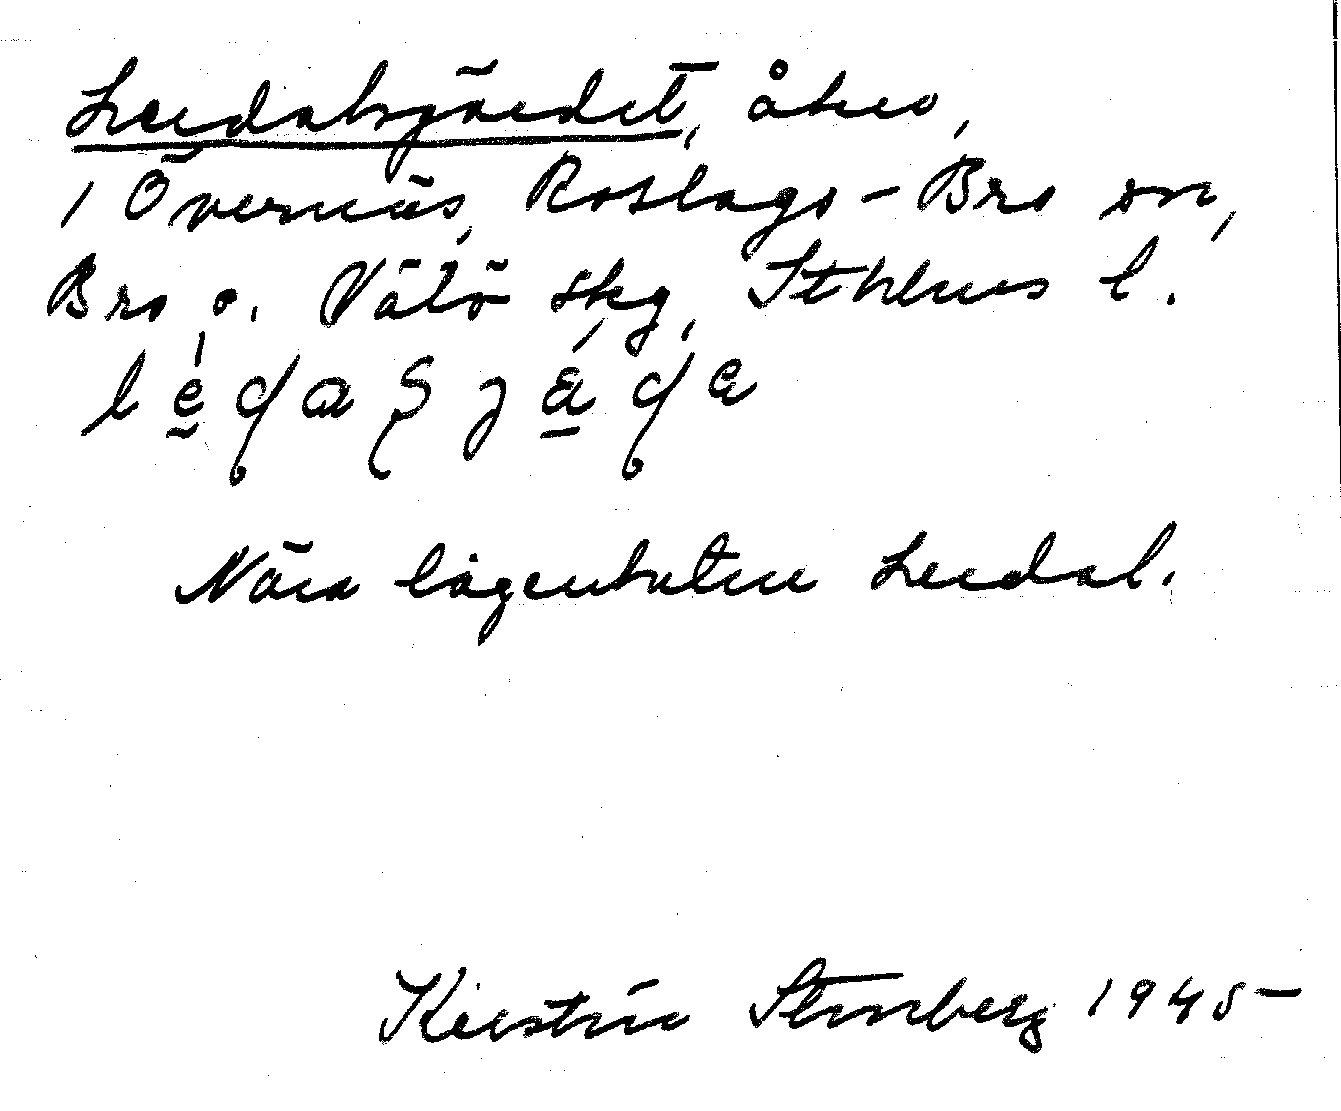 Lerdalsgärdet, åker,
i Övernäs, Roslags-Bro sn,
Bro o. Vätö skg, Sthlms l.
Nära lägenheten Lerdal.
Kerstin Stenberg 1945